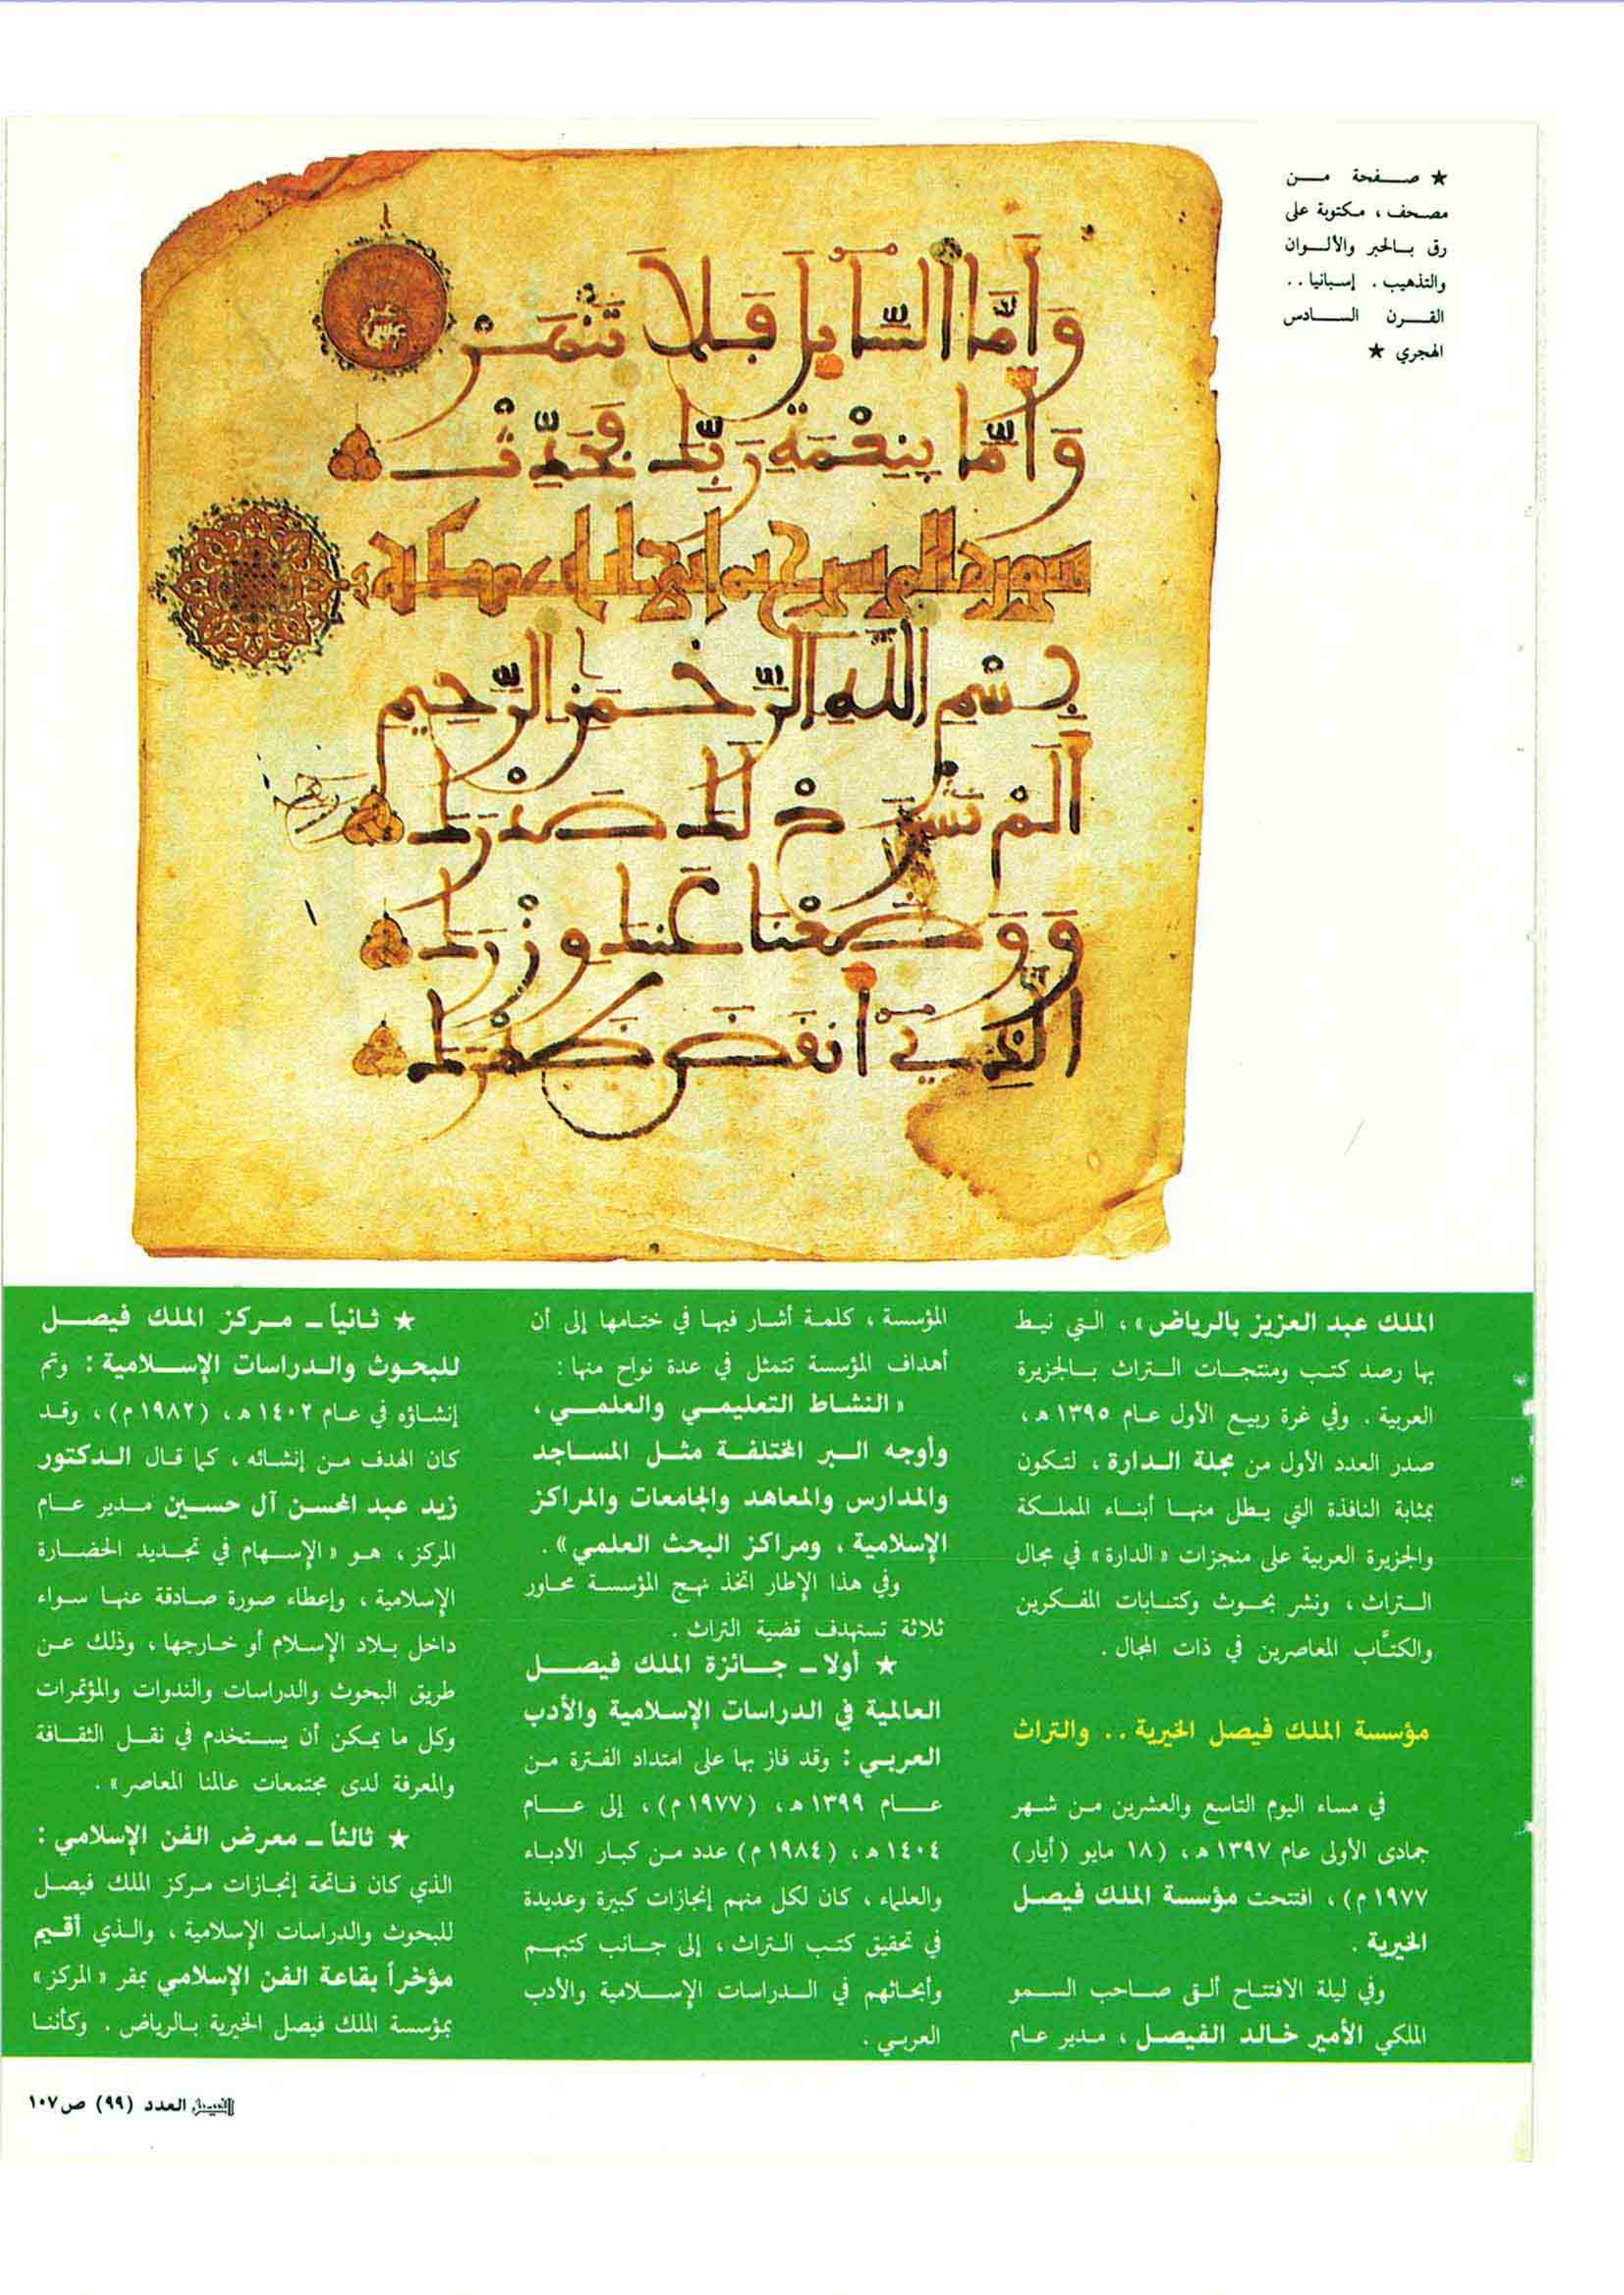 ★ صفحة من
مصحف، مكتوبة على
رق بالحبر والألوان
والتذهيب. إسبانيا..
القرن السادس
الهجري ★
وَأَمَّا السَّائِلَ فَلَا تَنْهَرْ
وَأَمَّا بِنِعْمَةِ رَبِّكَ فَحَدِّثْ
سورة ألم نشرح
بِسْمِ اللَّهِ الرَّحْمَنِ الرَّحِيمِ
أَلَمْ نَشْرَحْ لَكَ صَدْرَكَ
وَوَضَعْنَا عَنكَ وِزْرَكَ
الَّذِي أَنقَضَ ظَهْرَكَ
الملك عبد العزيز بالرياض»، التي نيط
بها رصد كتب ومنتجات التراث بالجزيرة
العربية. وفي غرة ربيع الأول عام ١٣٩٥ هـ،
صدر العدد الأول من مجلة الدارة، لتكون
بمثابة النافذة التي يطل منها أبناء المملكة
والجزيرة العربية على منجزات «الدارة» في مجال
التراث، ونشر بحوث وكتابات المفكرين
والكتَّاب المعاصرين في ذات المجال.
مؤسسة الملك فيصل الخيرية.. والتراث
في مساء اليوم التاسع والعشرين من شهر
جمادى الأولى عام ١٣٩٧ هـ، (١٨ مايو (أيار)
١٩٧٧ م)، افتتحت مؤسسة الملك فيصل
الخيرية.
وفي ليلة الافتتاح ألقى صاحب السمو
الملكي الأمير خالد الفيصل، مدير عام
المؤسسة، كلمة أشار فيها في ختامها إلى أن
أهداف المؤسسة تتمثل في عدة نواح منها:
«النشاط التعليمي والعلمي،
وأوجه البر المختلفة مثل المساجد
والمدارس والمعاهد والجامعات والمراكز
الإسلامية، ومراكز البحث العلمي».
وفي هذا الإطار اتخذ نهج المؤسسة محاور
ثلاثة تستهدف قضية التراث.
★ أولا ـ جائزة الملك فيصل
العالمية في الدراسات الإسلامية والأدب
العربي: وقد فاز بها على امتداد الفترة من
عام ١٣٩٩ هـ، (١٩٧٧ م)، إلى عام
١٤٠٤ هـ، (١٩٨٤ م) عدد من كبار الأدباء
والعلماء، كان لكل منهم إنجازات كبيرة وعديدة
في تحقيق كتب التراث، إلى جانب كتبهم
وأبحاثهم في الدراسات الإسلامية والأدب
العربي.
★ ثانياً ـ مركز الملك فيصل
للبحوث والدراسات الإسلامية: وتم
إنشاؤه في عام ١٤٠٢ هـ، (١٩٨٢ م)، وقد
كان الهدف من إنشائه، كما قال الدكتور
زيد عبد المحسن آل حسين مدير عام
المركز، هو «الإسهام في تجديد الحضارة
الإسلامية، وإعطاء صورة صادقة عنها سواء
داخل بلاد الإسلام أو خارجها، وذلك عن
طريق البحوث والدراسات والندوات والمؤتمرات
وكل ما يمكن أن يستخدم في نقل الثقافة
والمعرفة لدى مجتمعات عالمنا المعاصر».
★ ثالثاً ـ معرض الفن الإسلامي:
الذي كان فاتحة إنجازات مركز الملك فيصل
للبحوث والدراسات الإسلامية، والذي أقيم
مؤخراً بقاعة الفن الإسلامي بمقر «المركز»
بمؤسسة الملك فيصل الخيرية بالرياض. وكأننا
الفيصل العدد (٩٩) ص١٠٧